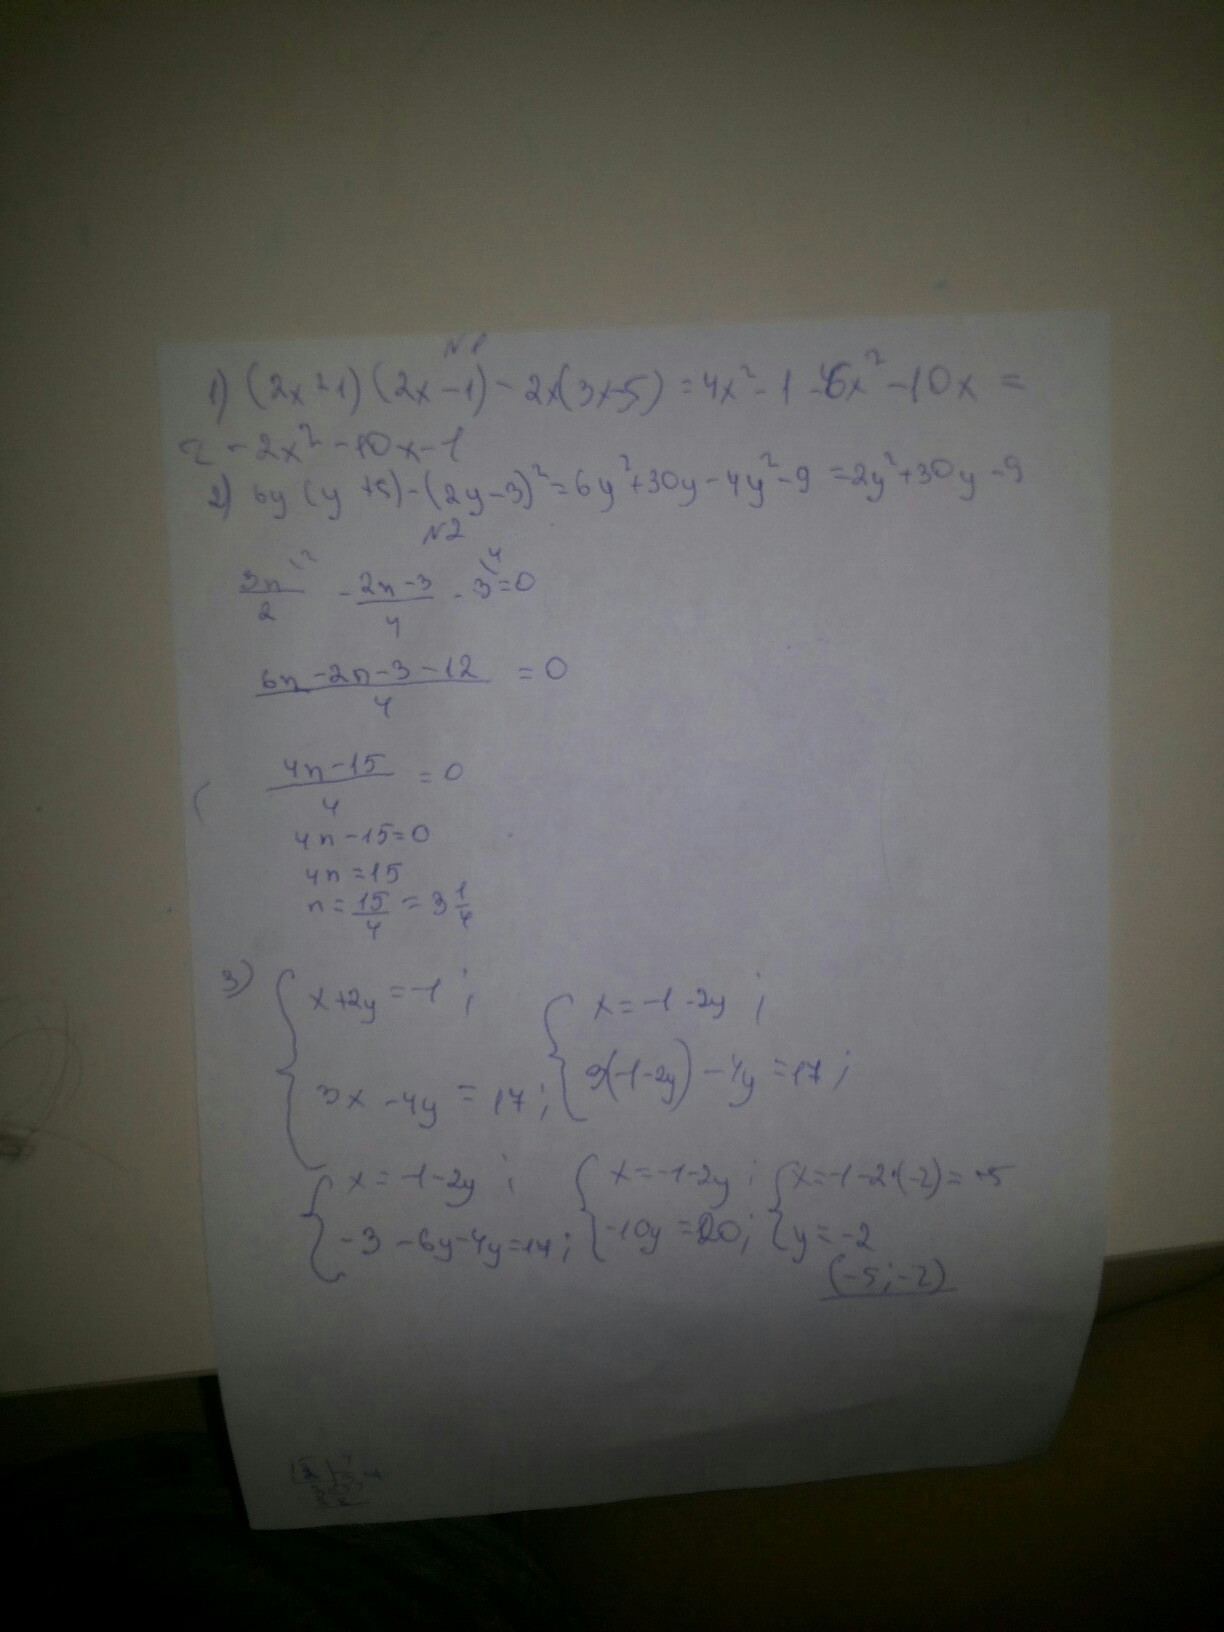 N1
1) (2x+1)(2x-1)-2x(3x-5)=4x²-1-6x²-10x=
=-2x²-10x-1
2) 6y(y+5)-(2y-3)²=6y²+30y-4y²-9=2y²+30y-9
N2
3n\2/2 - 2n-3/4 - 3\4=0
6n-2n-3-12/4 =0
4n-15/4 =0
4n-15=0
4n=15
n=15/4=3 1/4
3) {x+2y=-1; {x=-1-2y;
3x-4y=17; 3(-1-2y)-4y=17;
{x=-1-2y; {x=-1-2y; {x=-1-2·(-2)=-5
-3-6y-4y=17; -10y=20; y=-2
(-5;-2)